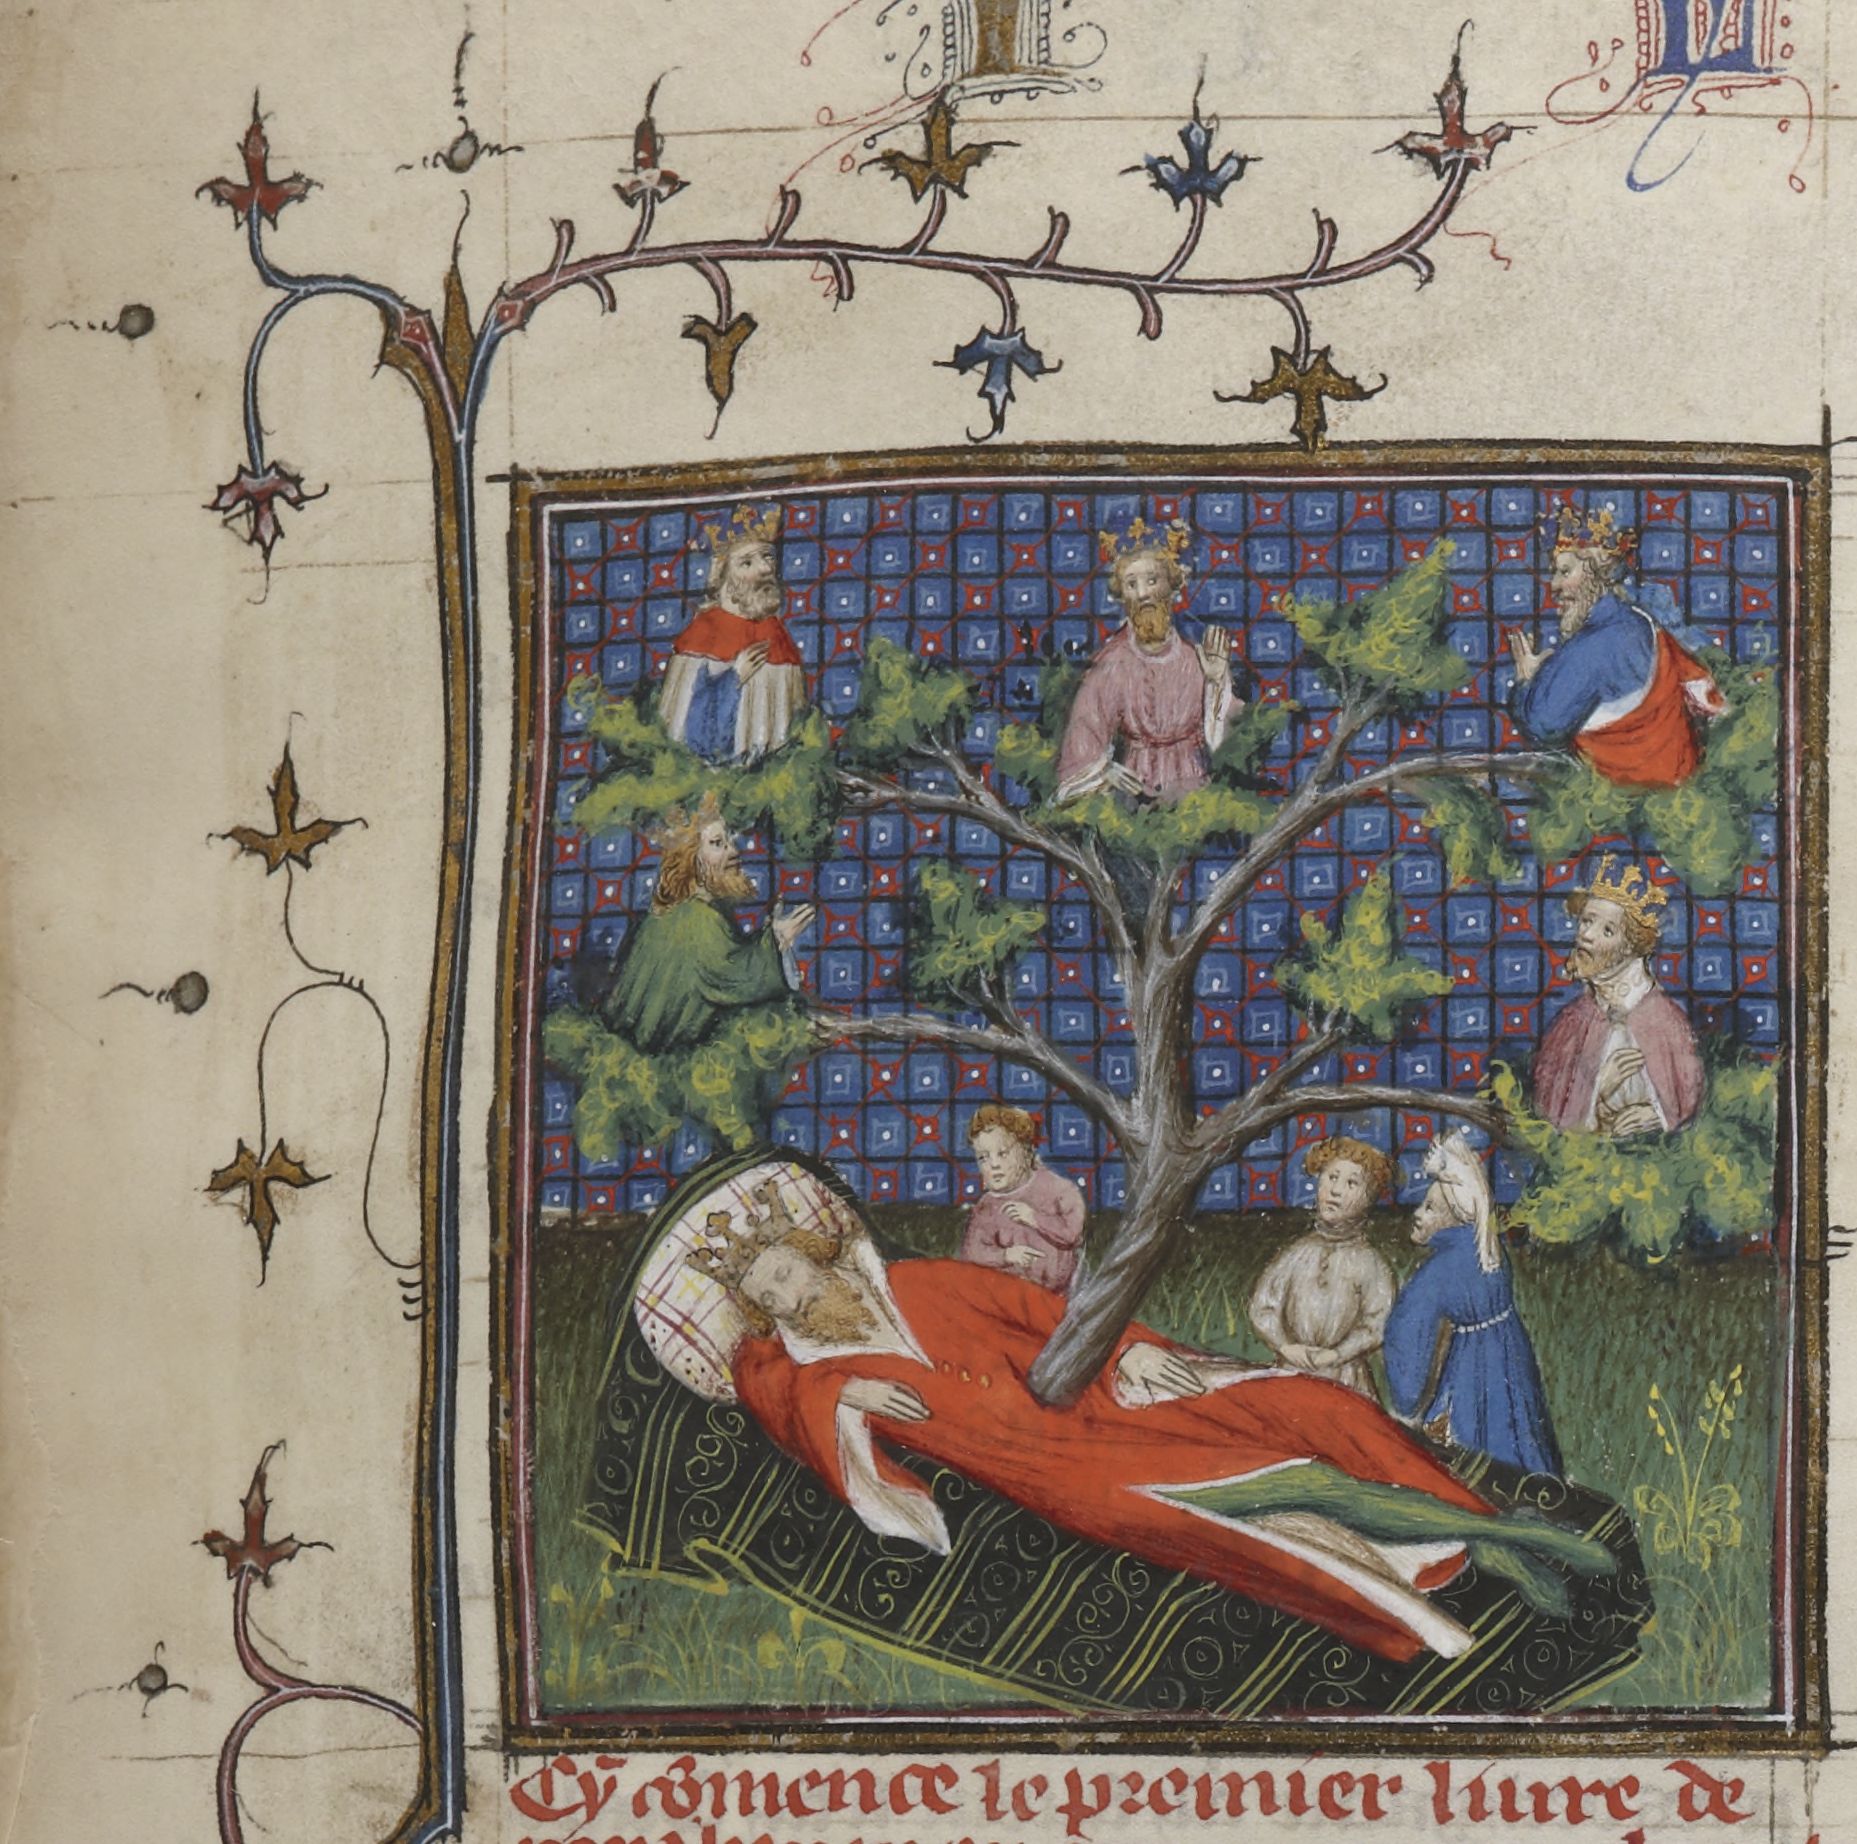 Cy cōmence le premier liure de